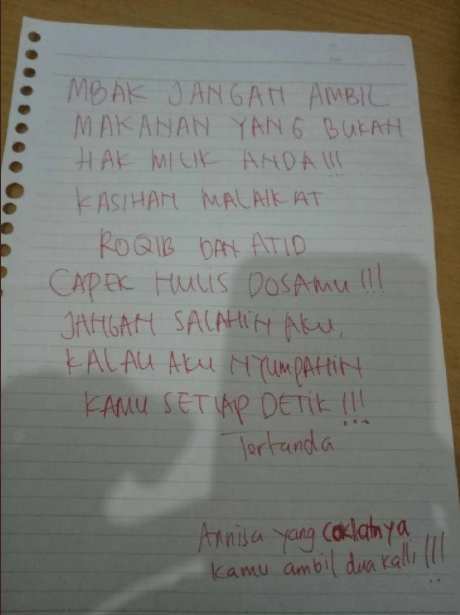 MBAK JANGAN AMBIL
MAKANAN YANG BUKAN
HAK MILIK ANDA!!!
KASIHAN MALAIKAT
ROQIB DAN ATID
CAPEK NULIS DOSAMU!!!
JANGAN SALAHIN AKU,
KALAU AKU NYUMPAHIN
KAMU SETIAP DETIK!!!
Tertanda
Annisa yang coklatnya
kamu ambil dua kali!!!